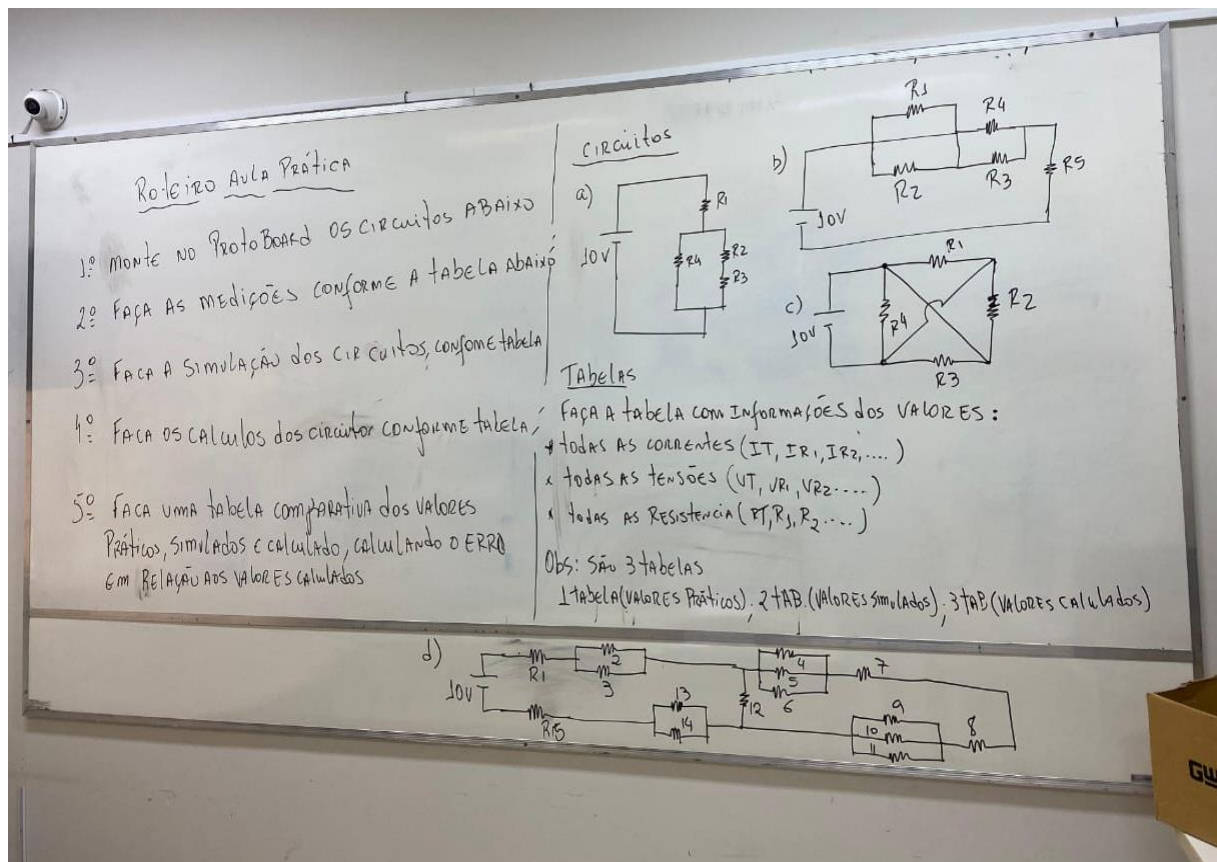 Roteiro Aula Prática
1º Monte no ProtoBoard os circuitos abaixo
2º Faça as medições conforme a tabela abaixo
3º Faca a simulação dos circuitos, confome tabela
4º Faca os calculos dos circuitor conforme tabela
5º Faca uma tabela comparativa dos valores
Práticos, simulados e calculado, calculando o erro
em relação aos valores calculados
Circuitos
a)
10V
R1
R4
R2
R3
b)
R1
R4
R2
R3
R5
10V
c)
10V
R1
R4
R2
R3
Tabelas
Faça a tabela com informações dos valores:
* todas as correntes (IT, IR1, IR2, ....)
x todas as tensões (VT, VR1, VR2 ....)
x todas as resistencia (RT, R1, R2 ....)
Obs: São 3 tabelas
1 tabela (valores Práticos), 2 tAB. (valores simulados); 3 tAB (valores calculados)
d)
10V
R1
2
3
4
5
6
7
8
9
10
11
12
13
14
R15
GW